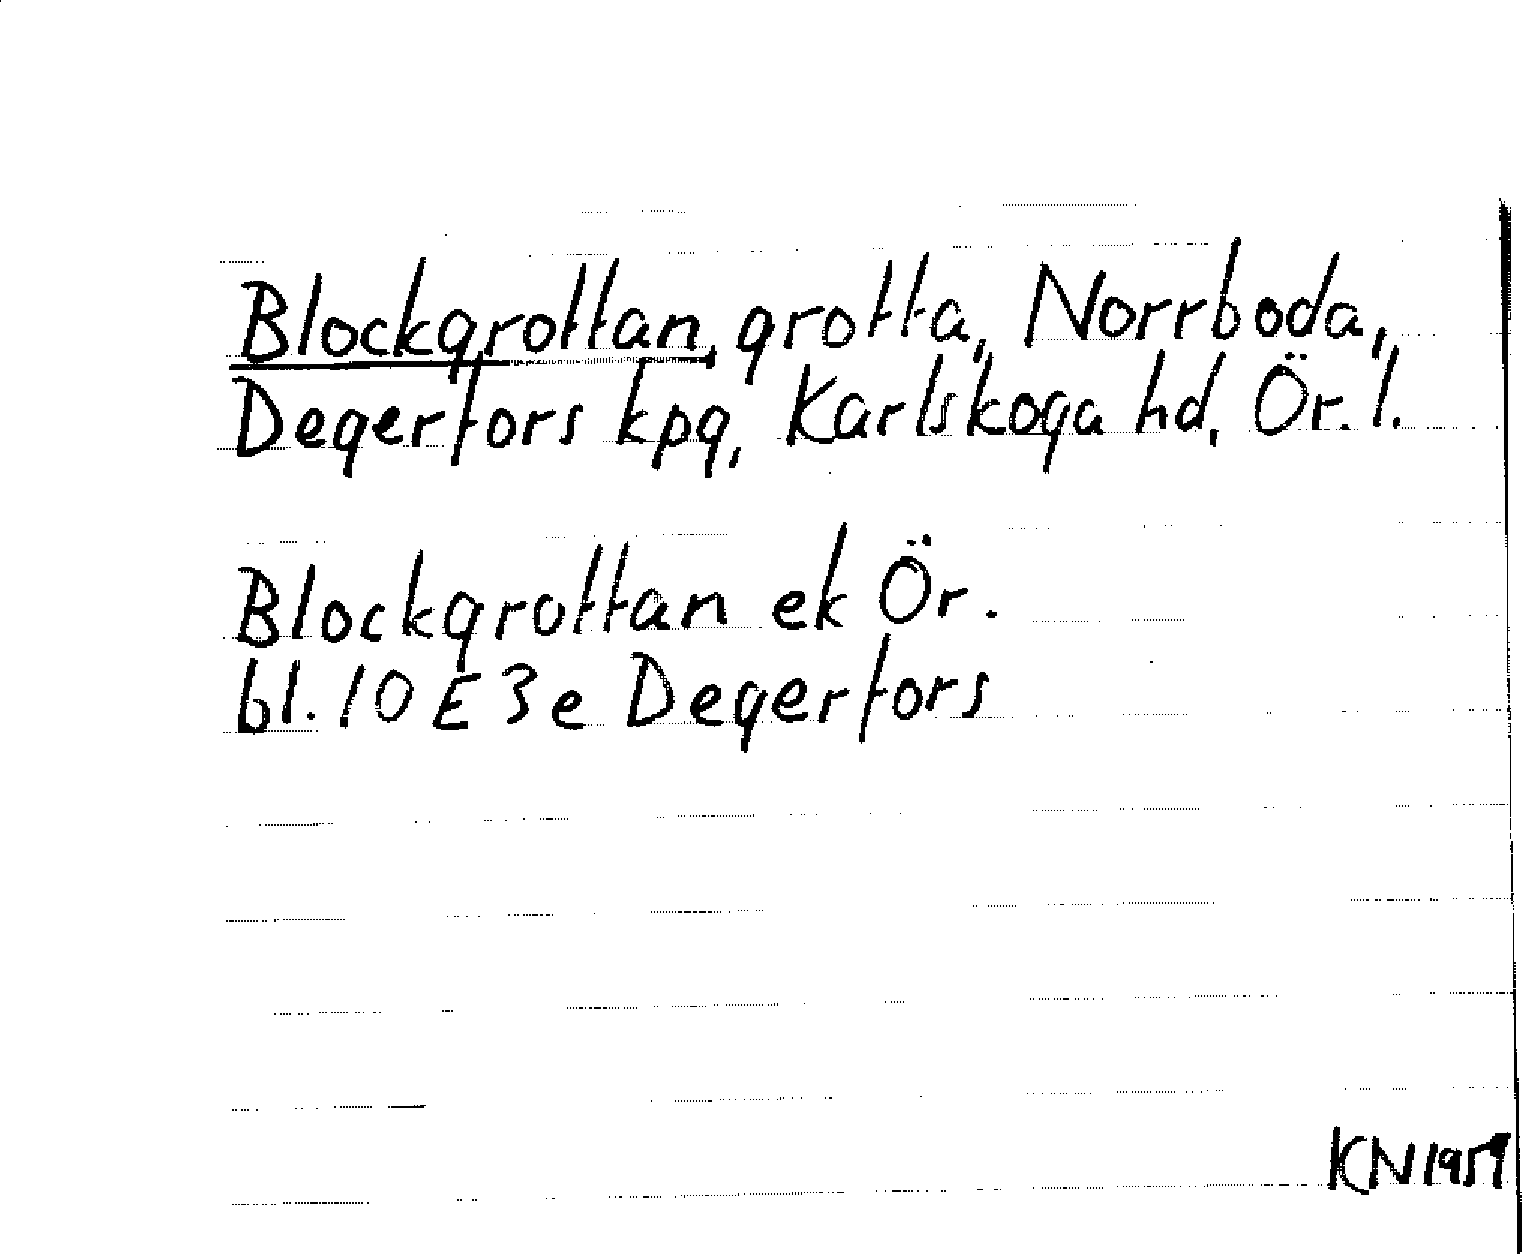 Blockgrottan, grotta, Norrboda,
Degerfors kpg, Karlskoga hd, Ör. l.
Blockgrottan ek Ör.
bl. 10 E 3e Degerfors
KN 1959